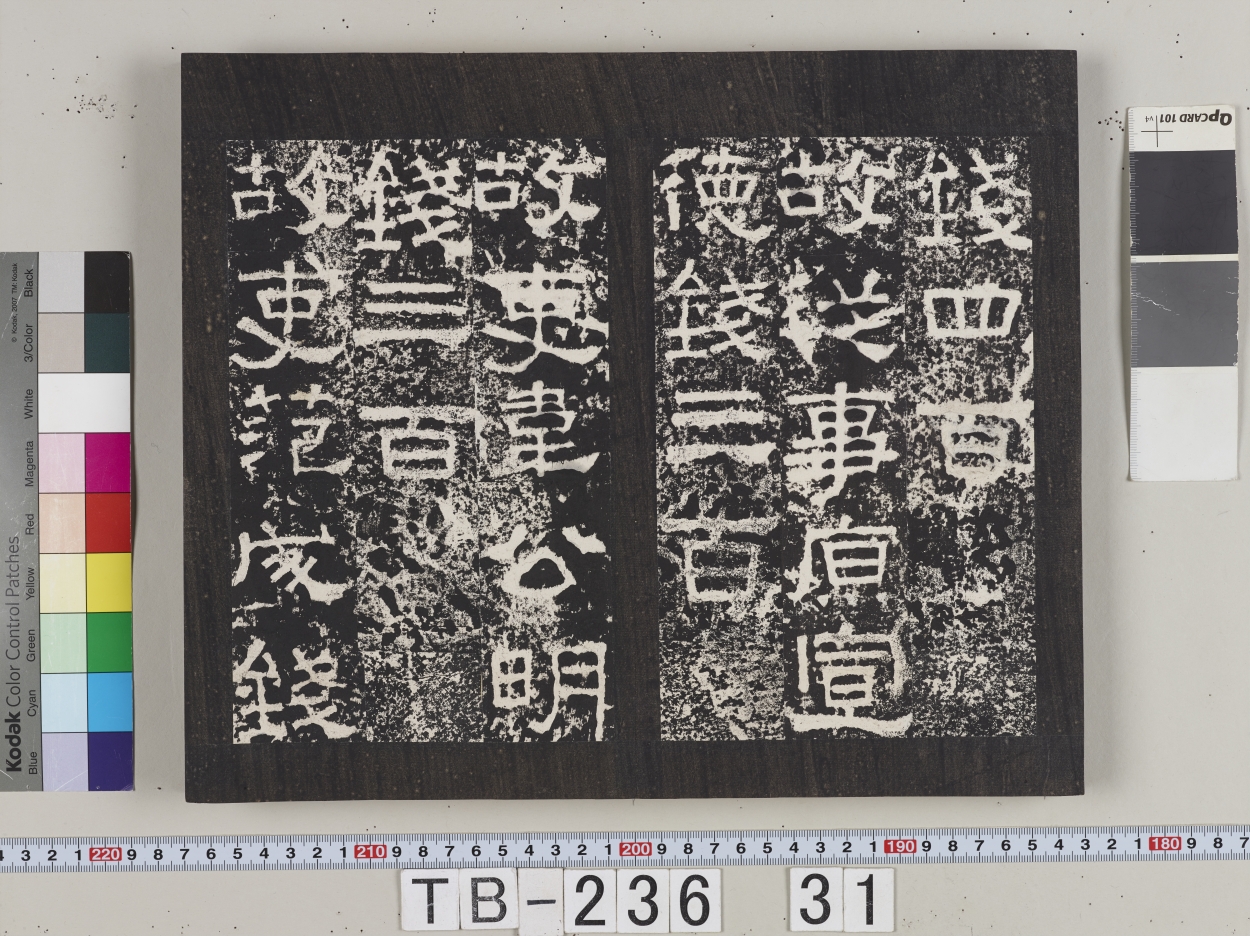 錢四百
故從事原宣
德錢三百
故吏韋公明
錢三百
故吏范成錢
QPCARD 101 v4
Kodak Color Control Patches
© Kodak, 2007 TM: Kodak
Blue Cyan Green Yellow Red Magenta White 3/Color Black
4 3 2 1 220 9 8 7 6 5 4 3 2 1 210 9 8 7 6 5 4 3 2 1 200 9 8 7 6 5 4 3 2 1 190 9 8 7 6 5 4 3 2 1 180 9 8 7
TB-236 31